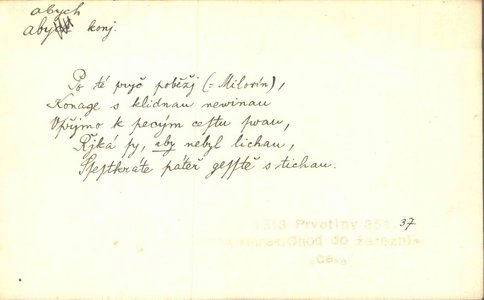 abych
abych konj.
Po té pryč poběžj (= Milorín),
Konage s klidnau newinau
Vpřjmo k pecým cestu swau,
Řjká sy, aby nebyl lichau,
Ssestkráte páteř gesstě s tichau.
1818 Prvotiny 37
Chod do železni-